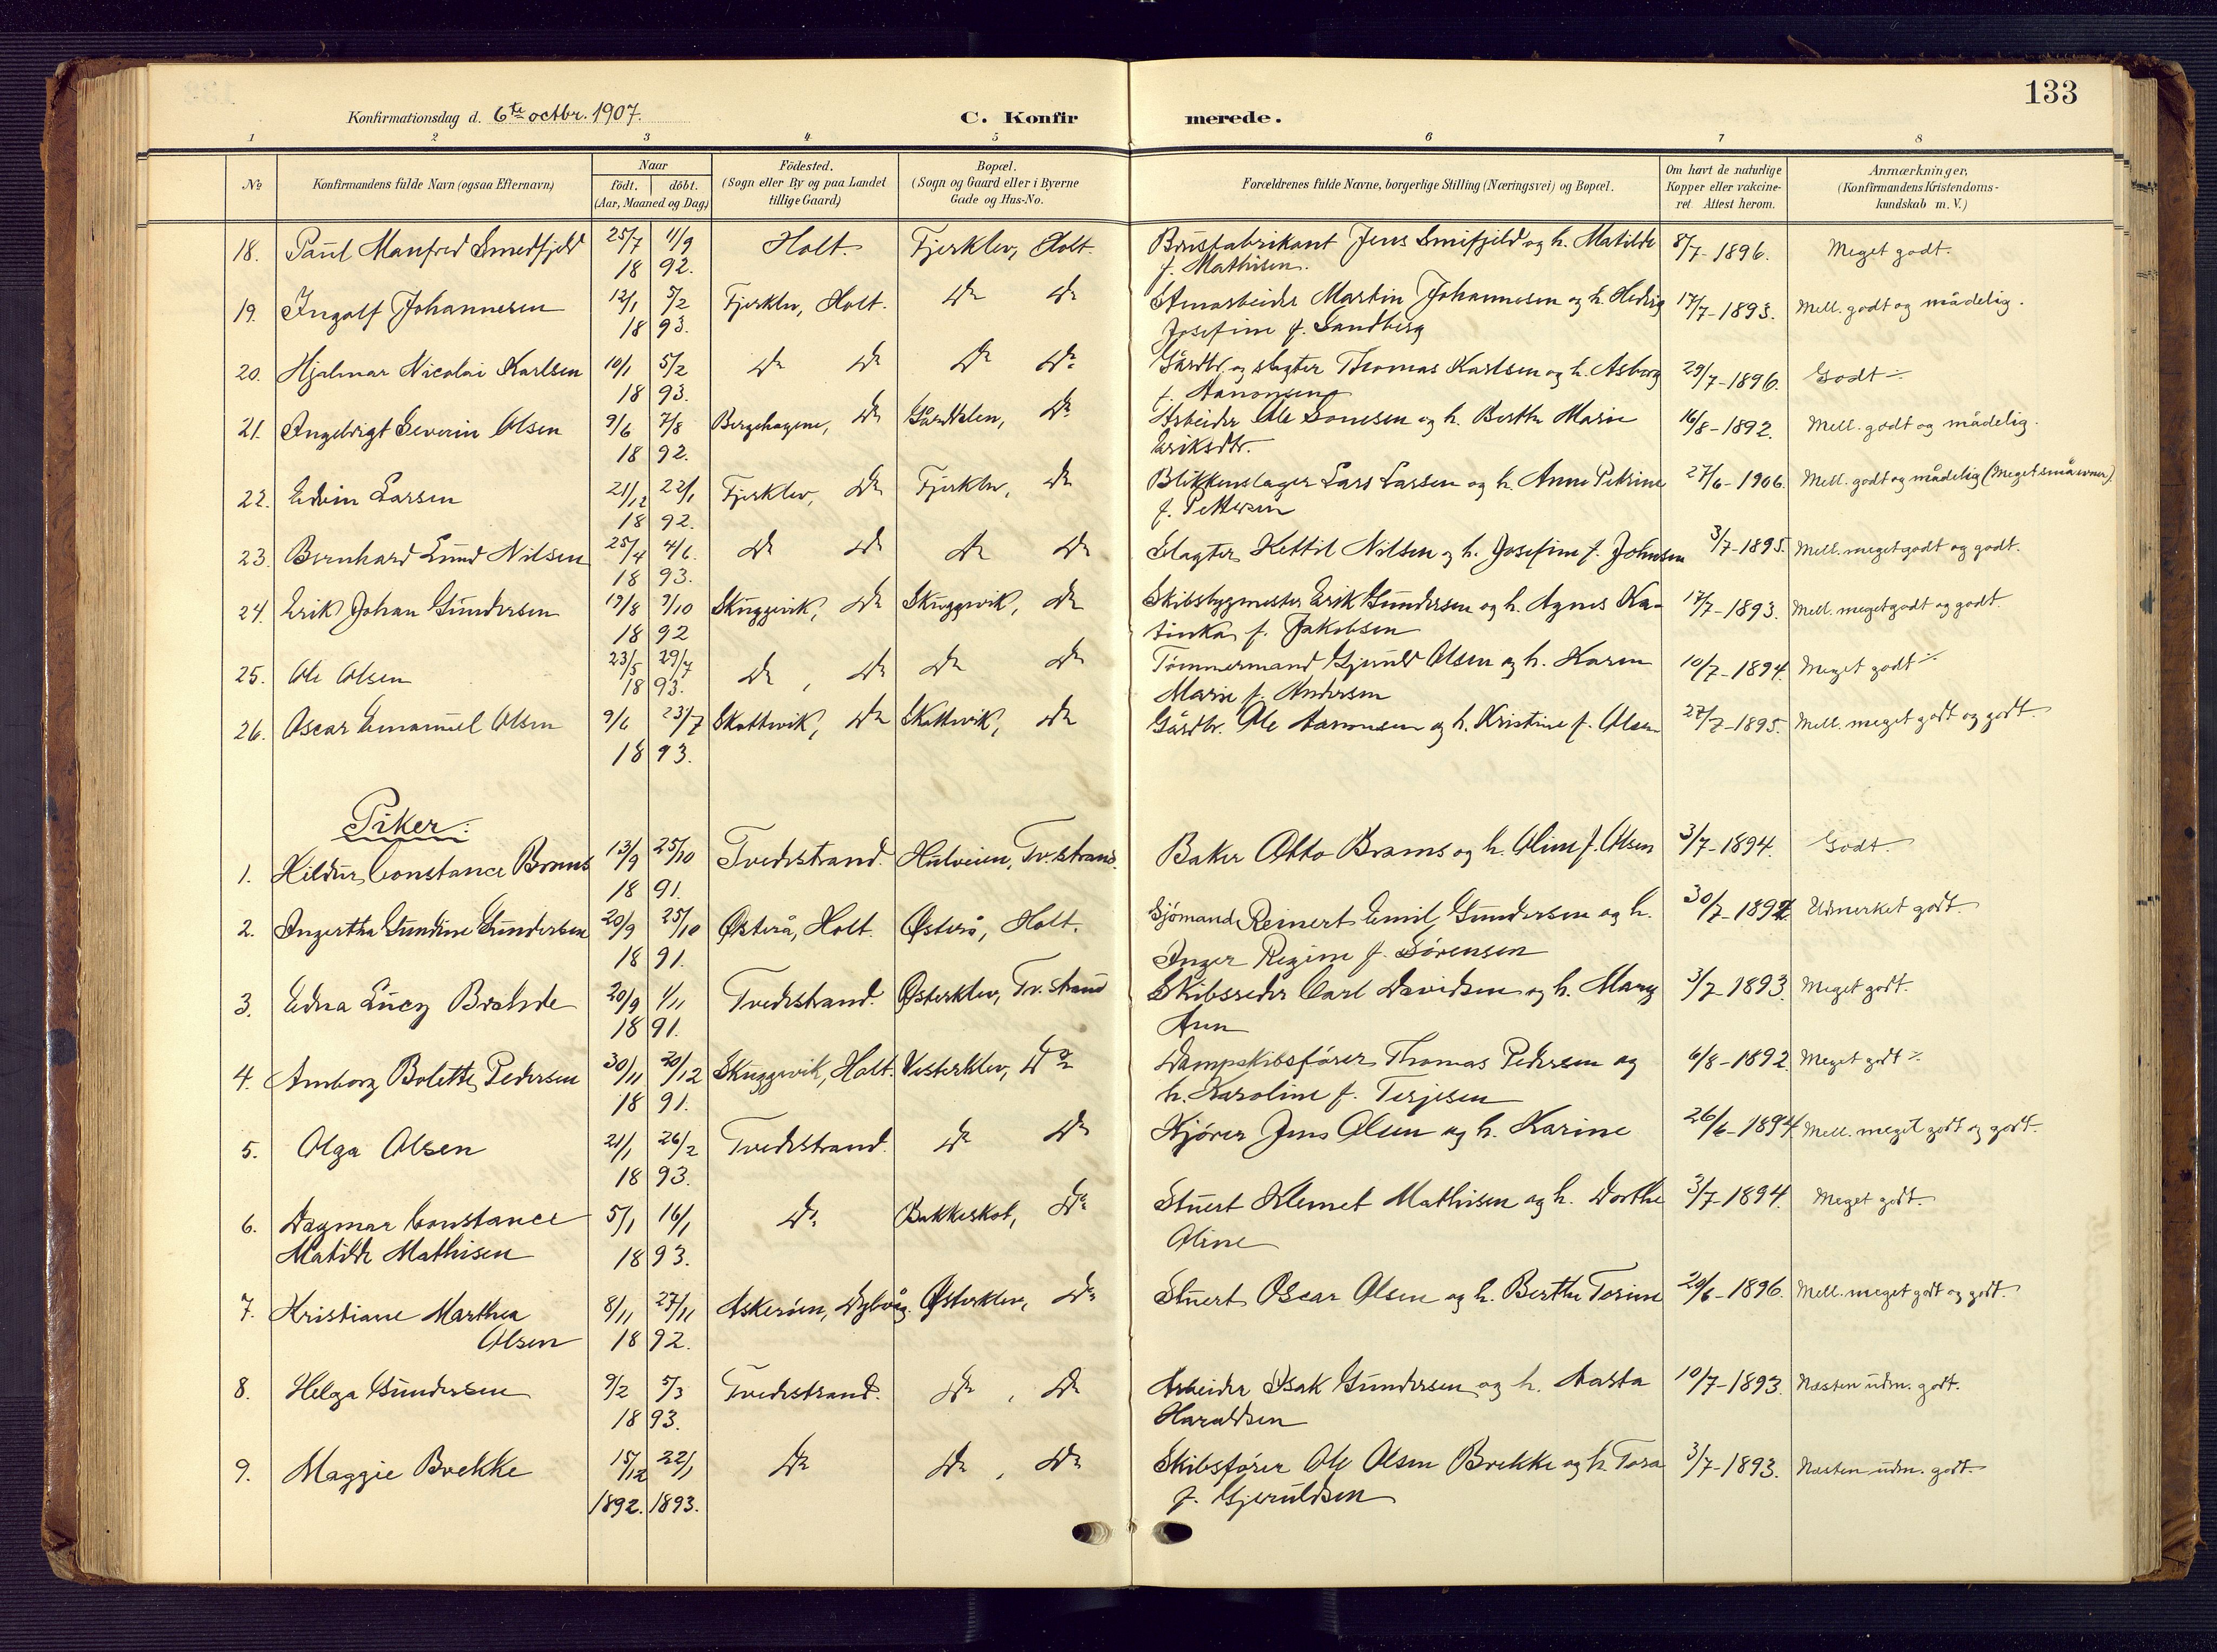 133
Konfirmationsdag d. 6te octbr. 1907.
C. Konfirmerede.
1 2 3 4 5 6 7 8
No
Konfirmandens fulde Navn (ogsaa Efternavn)
Naar
födt. döbt.
(Aar, Maaned og Dag)
Födested.
(Sogn eller By og paa Landet
tillige Gaard)
Bopæl.
(Sogn og Gaard eller i Byerne
Gade og Hus-No.
Forældrenes fulde Navne, borgerlige Stilling (Næringsvei) og Bopæl.
Om havt de naturlige
Kopper eller vakcine-
ret. Attest herom.
Anmærkninger,
(Konfirmandens Kristendoms-
kundskab m. V.)
18. Paul Manfred Smedfjeld 25/7 11/9 Holt. Fjerklev, Holt. Brusfabrikant Jens Smifjeld og h. Matilde 8/7-1896. Meget godt.
18 92. f. Mathisen.
19. Ingolf Johannesen 12/1 5/2 Fjerklev, Holt. Do Do Stenarbeider Martin Johannesen og h. Hedvig 17/7-1893. Mell. godt og mådelig.
18 93. Josefine f. Sandberg
20. Hjalmar Nicolai Karlsen 10/1 5/2 Do Do Do Do Gårdbr. og slagter Thomas Karlsen og h. Asborg 29/7-1896. Godt
18 93. f. Aanonsen
21. Ingebrigt Severin Olsen 9/6 7/8 Bergehagene, Do Do Arbeider Ole Sonesen og h. Berthe Marie 16/8-1892. Mell. godt og mådelig.
18 92. Eriksdtr.
22. Edvin Larsen 21/12 22/1 Fjerklev, Do Fjerklev, Do Blikkenslager Lars Larsen og h. Anne Petrine 27/6-1906. Mell. godt og mådelig (Meget små evner)
18 92. f. Pettersen
23. Bernhard Lund Nilsen 25/4 4/6 Do Do Do Do Slagter Kettil Nilsen og h. Josefine f. Johnsen 3/7-1895. Mell. meget godt og godt.
18 93.
24. Erik Johan Gundersen 19/8 9/10 Skuggevik, Do Skuggevik, Do Skibsbygmester Erik Gundersen og h. Agnes Ka- 17/7-1893. Mell. meget godt og godt.
18 92 tinka f. Jakobsen
25. Ole Olsen 23/5 29/7 Do, Do Do Do Tömmermand Gjeruld Olsen og h. Karen 10/7-1894. Meget godt
18 93. Marie f. Andersen
26. Oscar Emanuel Olsen 9/6 23/7 Skottevik, Do Skottevik, Do Gårdbr. Ole Aanonsen og h. Kristine f. Olsen 27/7-1895. Mell. meget godt og godt.
18 93.
Piker:
1. Hildur Constance Brams 13/9 25/10 Tvedestrand. Hulveien, Tv.strand. Baker Otto Brams og h. Oline f. Olsen 3/7-1894. Godt
18 91.
2. Ingertha Gundine Gundersen 20/9 25/10 Østerå, Holt. Østerå, Holt. Sjömand Reinert Emil Gundersen og h. 30/7-1892. Udmerket godt.
18 91. Inger Regine f. Sörensen
3. Edna Lucy 20/9 1/11 Tvedestrand. Østerklev, Tv.strand Skibsreder Carl Davidsen og h. Mary 3/7-1893. Meget godt.
18 91. Ann
4. Amborg Bolette Pedersen 30/11 20/12 Skuggevik, Holt. Vesterklev, Do Dampskibsförer Thomas Pedersen og 6/8-1892. Meget godt
18 91. h. Karoline f. Terjesen
5. Olga Olsen 21/1 26/2 Tvedestrand. Do Do Kjörer Jens Olsen og h. Karine 26/6-1894 Mell. meget godt og godt.
18 93.
6. Dagmar Constance 5/1 16/1 Do Bakkeskot, Do Stuert Klemet Mathisen og h. Dorthe 3/7-1894. Meget godt.
Matilde Mathisen 18 93. Oline
7. Kristiane Marthea 8/11 27/11 Askeröen, Dybvåg. Østerklev, Do Stuert Oscar Olsen og h. Berthe Torine 29/6-1896. Mell. meget godt og godt.
Olsen 18 92.
8. Helga Gundersen 9/2 5/3 Tvedestrand. Do, Do Arbeider Isak Gundersen og h. Aasta 10/7-1893. Næsten udm. godt.
18 93. Haraldsen
9. Maggie Brekke 15/12 22/1 Do Do, Do Skibsförer Ole Olsen Brekke og h. Tora 3/7-1893. Næsten udm. godt.
1892. 1893. f. Gjeruldsen